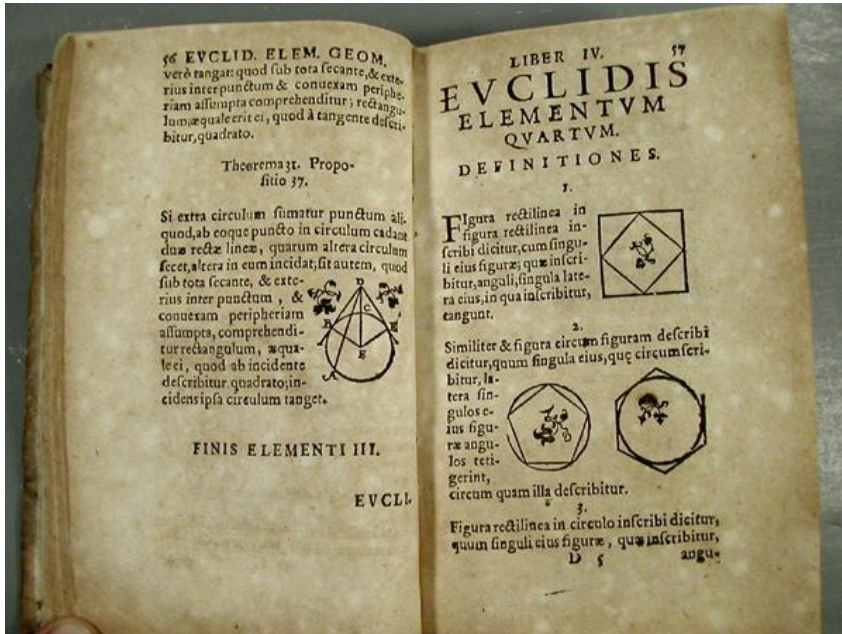 56 EVCLID. ELEM. GEOM.
verò tangat: quod ſub tota ſecante, & exte-
rius inter punctum & conuexam periphe-
riam aſſumpta comprehenditur; rectangu-
lum, æquale erit ei, quod à tangente deſcri-
bitur, quadrato.
Theorema 31. Propo-
ſitio 37.
Si extra circulum ſumatur punctum ali-
quod, ab eoque puncto in circulum cadant
duæ rectæ lineæ, quarum altera circulum
ſecet, altera in eum incidat; ſit autem, quod
ſub tota ſecante, & exte-
rius inter punctum, &
conuexam peripheriam
aſſumpta, comprehendi-
tur rectangulum, æqua-
le ei, quod ab incidente
deſcribitur quadrato; in-
cidens ipſa circulum tanget.
D
C
B
E
F
A
FINIS ELEMENTI III.
EVCLI.
LIBER IV. 57
EVCLIDIS
ELEMENTVM
QVARTVM.
DEFINITIONES.
1.
FIgura rectilinea in
figura rectilinea in-
ſcribi dicitur, cum ſingu-
li eius figuræ; quæ inſcri-
bitur, anguli, ſingula late-
ra eius, in qua inſcribitur,
tangunt.
2.
Similiter & figura circum figuram deſcribi
dicitur, quum ſingula eius, quę circumſcri-
bitur, la-
tera ſin-
gulos e-
ius figu-
ræ angu-
los teti-
gerint,
circum quam illa deſcribitur.
3.
Figura rectilinea in circulo inſcribi dicitur,
quum ſinguli eius figuræ, quæ inſcribitur,
D 5 angu-